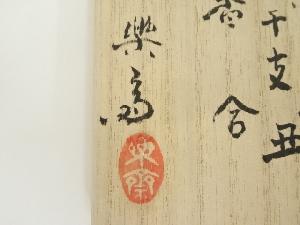 干支丑
香合
樂斎